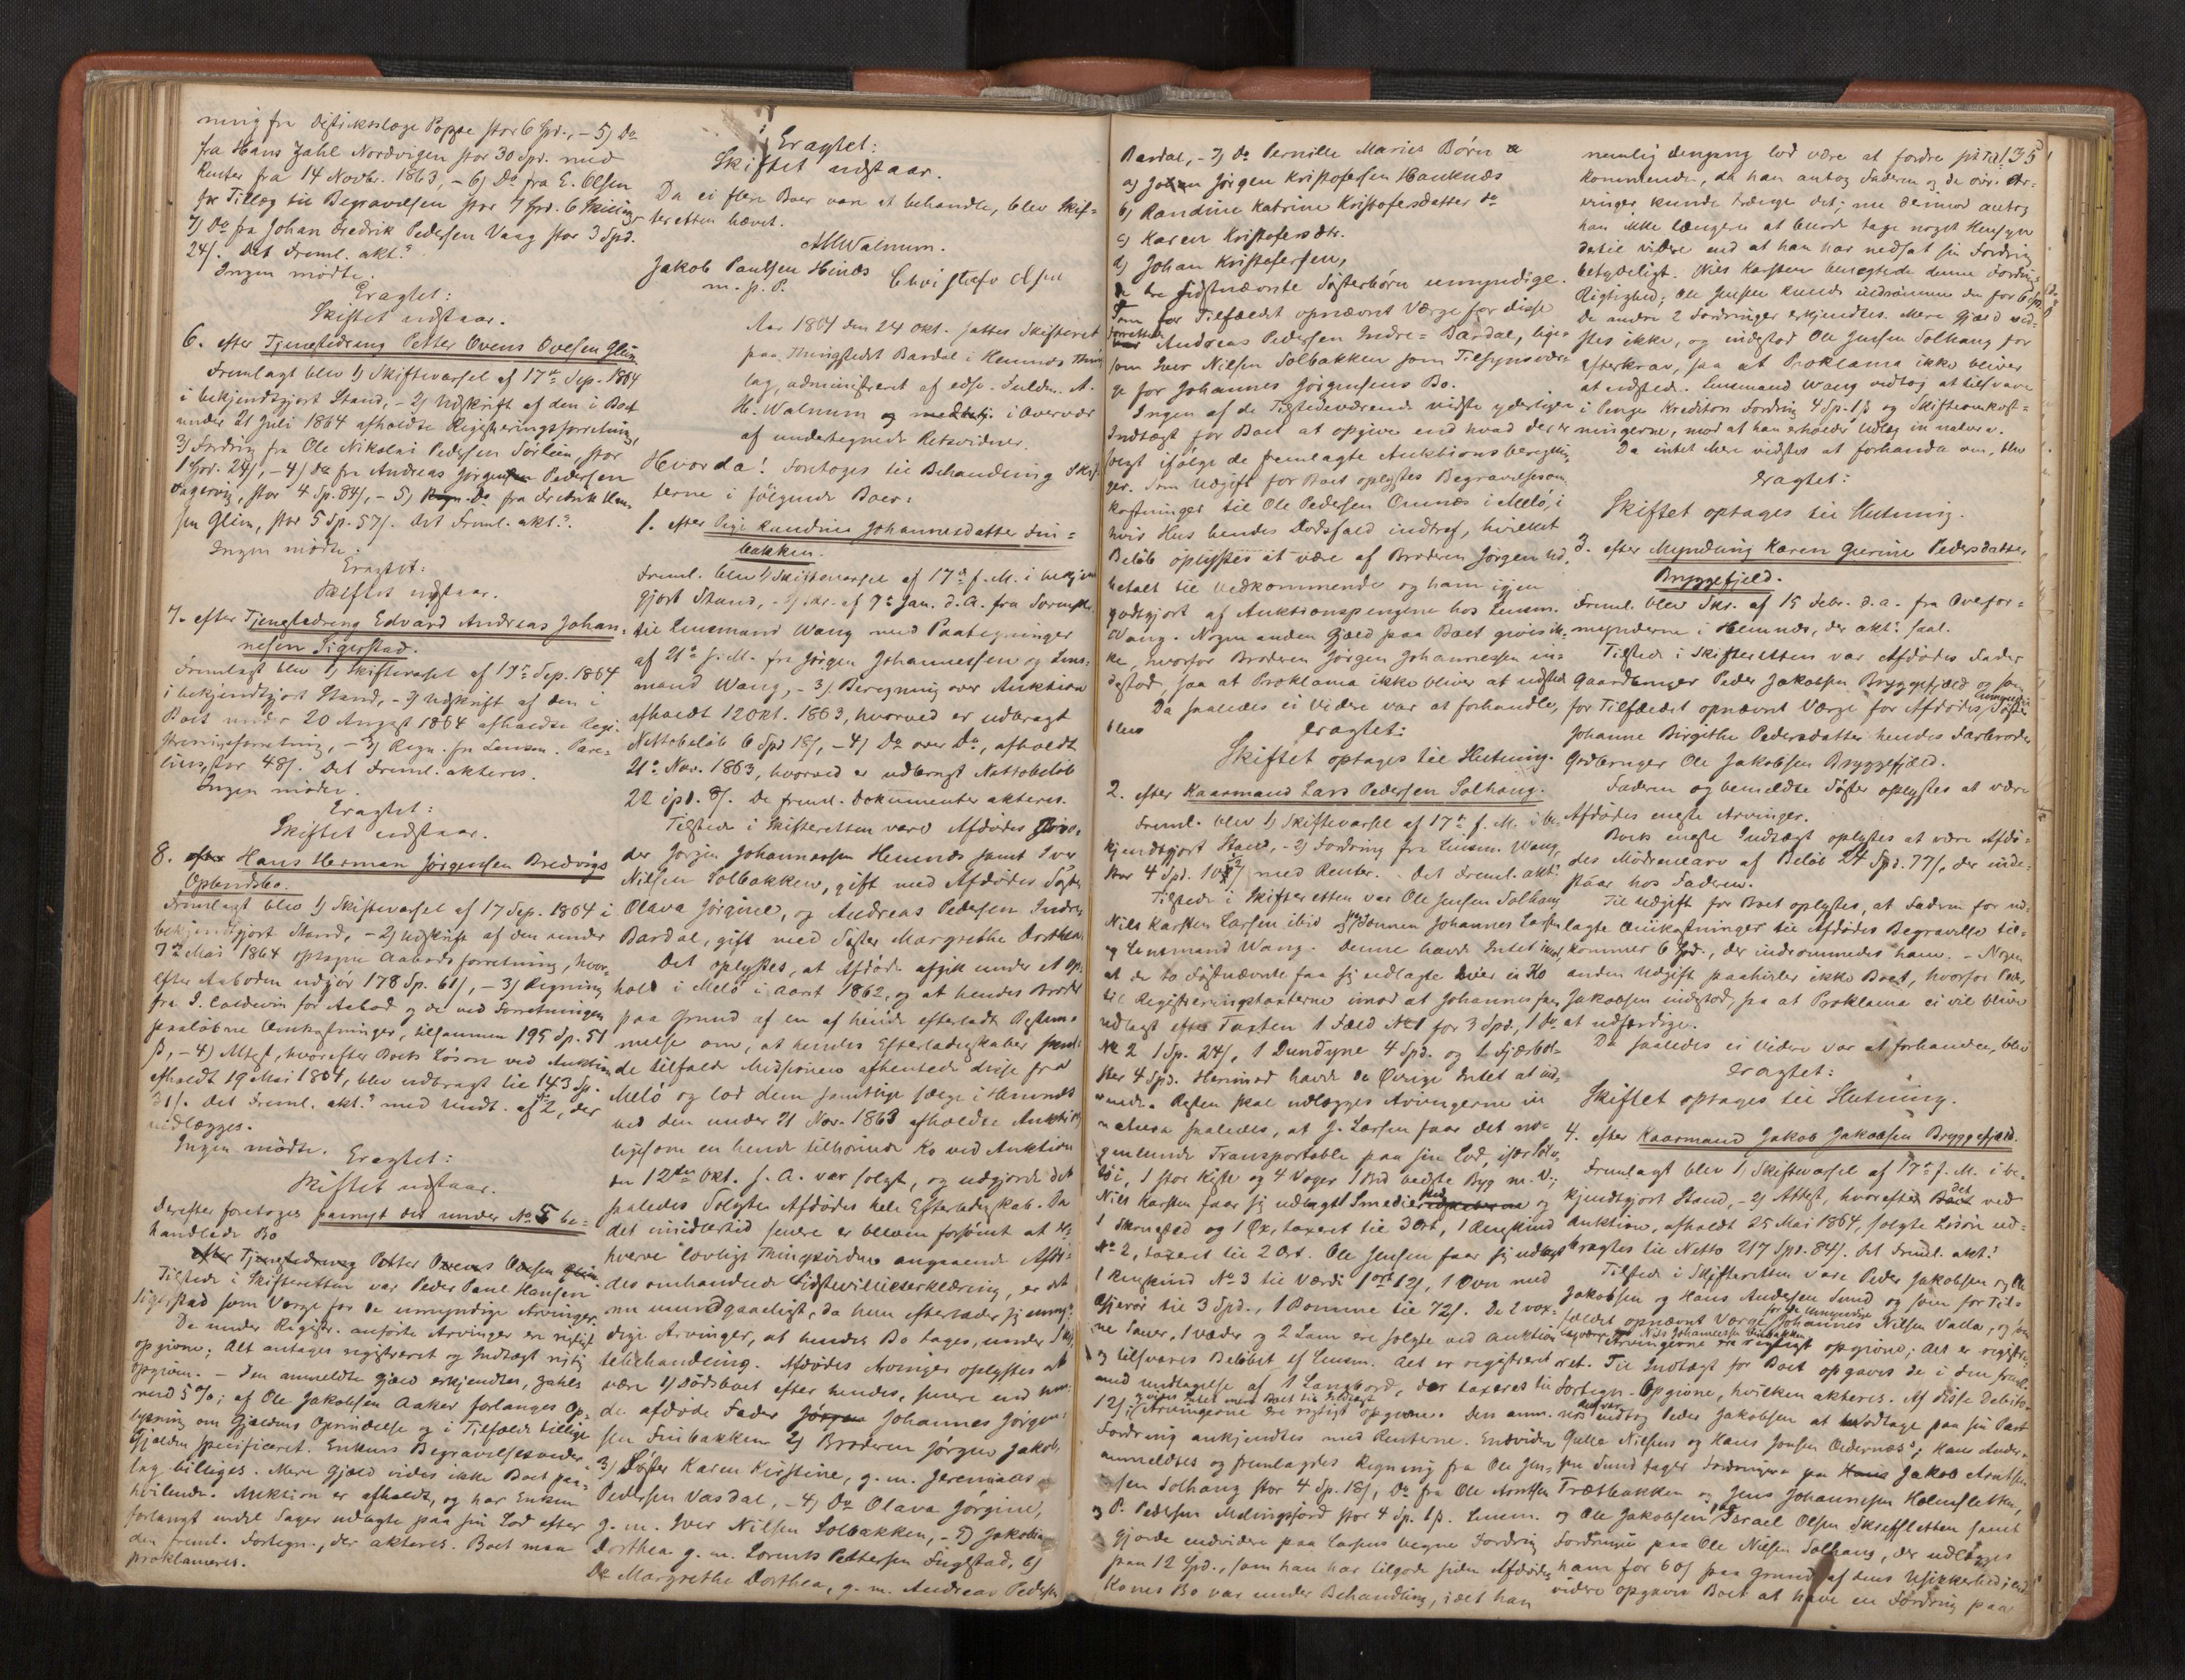 ning fra Distriktslæge Poppe stor 6 Spd., - 5) Do
fra Hans Zahl Nordvigen stor 30 Spd. med
Renter fra 14 Novbr. 1863, - 6) Do fra E. Olsen
for Tillæg til Begravelsen stor 7 Spd. 6 Skilling
7) Do fra Johan Fredrik Pedersen Vaag stor 3 Spd.
24 ß. Det Freml. akt.
Ingen mødte.
Eragtet:
Skiftet udstaar.
6. efter Tjenestedreng Petter Ovens Ovesen Glim
Fremlagt blev 1) Skiftevarsel af 17de Sep. 1864
i bekjendtgjort Stand, - 2) Udskrift af den i Boet
under 21 Juli 1864 afholdte Registreringsforretning,
3) Fordring fra Ole Nikolai Pedersen Sörlien, stor
1 Spd. 24 ß, - 4) Do fra Andreas Jörgensen Pedersen
stor 4 Sp. 84 ß, - 5) Regn. Do fra Fredrik Han-
sen Glim, stor 5 Sp. 57 ß. Det Freml. akt.
Ingen mødte.
Eragtet:
Skiftet udstaar.
7. efter Tjenestedreng Edvard Andreas Johan-
nesen Sigerstad.
Fremlagt blev 1) Skiftevarsel af 17de Sep. 1864
i bekjendtgjort Stand, - 2) Udskrift af den i
Boet under 20 August 1864 afholdte Regi-
streringsforretning, - 3) Regn. fra Lensm.
stor 48 ß. Det Freml. akteres.
Ingen møder.
Eragtet:
Skiftet udstaar.
8. efter Hans Herman Jörgensen Bredvigs
Opbudsbo.
Fremlagt blev 1) Skiftevarsel af 17 Sep. 1864 i
bekjendtgjort Stand, - 2) Udskrift af den under
7de Mai 1864 optagne Aabodsforretning, hvor-
efter Aaboden udgjør 178 Sp. 61 ß, - 3) Regning
fra I. Coldevin for Aabod og de ved Forretningen
paaløbne Omkostninger, tilsammen 195 Sp. 51
ß, - 4) Attest, hvorefter Boets Løsøre ved Auktion
afholdt 19 Mai 1864, blev udbragt til 143 Sp.
31 ß. Det Freml. akt. med Undt. af No 2, der
vidlægges.
Ingen mødte. Eragtet:
Skiftet udstaar.
Derefter foretoges paanyt det under No 5 be-
handlede Bo
efter Tjenestedreng Petter Ovens Ovesen Glim
Tilstede i Skifteretten var Peder Paul Hansen
Sigerstad som Værge for de umyndige Arvinger.
De under Registr. anførte Arvinger ere rigtigt
opgivne; Alt antages registreret og Indtægt rigtig
opgiven. - Den anmeldte Gjæld erkjendtes, Zahls
med 5 %; af Ole Jakobsen Aaker forlanges Op-
lysning om Gjældens Oprindelse og i Tilfælde tillige
Gjælden specificeret. Enkens Begravelsesveder-
lag billiges. Mere Gjæld vides ikke Boet paa-
hvilende. Auktion er afholdt, og har Enken
forlangt endel Sager udlagte paa sin Lod efter
den freml. Fortegn., der akteres. Boet maa
proklameres.
Eragtet:
Skiftet udstaar.
Da ei flere Boer vare at behandle, blev Skif-
teretten hævet.
AHWalnum.
Jakob Paulsen Hinæs Christofer Olsen
m. p. P.
Aar 1864 den 24 Okt. sattes Skifteret
paa Thingstedet Bardal i Hemnæs Thing
lag, administreret af edsv. Fuldm. A.
H. Walnum og medbetj. i Overvær
af undertegnede Retsvidner.
Hvorda! Foretoges til Behandling Skif-
terne i følgende Boer:
1. efter Pige Randine Johannesdatter Fin-
bakken.
Freml. blev 1) Skiftevarsel af 17de f. M. i bekjendt
gjort Stand, - 2) Skr. af 7de Jan. d. A. fra
til Lensmand Wang med Paategninger
af 21de s. M. fra Jörgen Johannessen og Lens-
mand Wang, - 3) Beregning over Auktion
afholdt 12 Okt. 1863, hvorved er udbragt
Nettobeløb 6 Spd 18 ß, - 4) Do over Do, afholdt
21de Nov. 1863, hvorved er udbragt Nettobeløb
22 Spd. 8 ß. De freml. Dokumenter akteres.
Tilstede i Skifteretten vare Afdødes Bro-
der Jørgen Johannessen Hemnæs samt Iver
Nilsen Solbakken, gift med Afdødes Søster
Olava Jörgine, og Andreas Pedersen Indre
Bardal, gift med Søster Margrethe Dorthea.
Det oplystes, at Afdøde afgik under et Op-
hold i Melö i Aaret 1862, og at hendes Broder
paa Grund af en af hende efterladt Bestem-
melse om, at hendes Efterladenskaber skul-
de tilfalde Missionen afhentede disse fra
Melö og lod dem samtlige sælge i Hemnæs
ved den under 21 Nov. 1863 afholdte Auktion
ligesom en hende tilhørende Ko ved Auktion
den 12te Okt. s. A. var solgt, og udgjorde det
saaledes Solgte Afdødes hele Efterladenskab. Da
det imidlertid senere er bleven forsømt at er-
hverve lovlige Thingsvidne angaaende Afdø-
des omhandlede Sidstevillieserklæring, er det
nu uundgaaeligt, da hun efterlader sig umyn-
dige Arvinger, at hendes Bo tages under Skif-
tebehandling. Afdødes Arvinger oplystes at
være 1) Dødsboet efter hendes, senere end hun
de afdøde Fader Jörgen Johannes Jörgen-
sen Finbakken 2) Broderen Jörgen Jakob,
3) Søster Karen Kirstine, g. m. Jeremias
Pedersen Vasdal, - 4) Do Olava Jörgine,
g. m. Iver Nilsen Solbakken, - 5) Jakobine
Dorthea g. m. Lorents Pettersen Fuglstad, 6)
Do Margrethe Dorthea, g. m. Andreas Pedersen
Bardal, - 7) Do Pernille Maries Børn
a) Jörgen Kristofersen Hauknæs
b) Randine Katrine Kristofersdatter do
c) Karen Kristofersdtr.
d) Johan Kristofersen,
de tre sidstnævnte Søsterbørn umyndige.
Som for Tilfældet opnævnt Værge for disse
Andreas Pedersen Indre-Bardal, lige-
som Iver Nilsen Solbakken som Tilsynsvær-
ge for Johannes Jörgensens Bo.
Ingen af de Tilstedeværende vidste yderligere
Indtægt for Boet at opgive end hvad der er
solgt ifølge de fremlagte Auktionsberegnin-
ger. Som Udgift for Boet oplystes Begravelsesom-
kostninger til Ole Pedersen Ornæs i Melö, i
hvis Hus hendes Dødsfald indtraf, hvilket
Beløb oplystes at være af Broderen Jørgen ud-
betalt til Vedkommende og ham igjen
godtgjort af Auktionspengene hos Lensm.
Wang. Nogen anden Gjæld paa Boet gives ik-
ke, hvorfor Broderen Jörgen Johannessen in-
destod saa at Proklama ikke bliver at udstede
Da saaledes ei Videre var at forhandle,
blev Eragtet:
Skiftet optages til Slutning.
2. efter Kaarmand Lars Pedersen Solhaug.
Freml. blev 1) Skiftevarsel af 17de f. M. i be-
kjendtgjort Stand, - 2) Fordring fra Lensm. Wang,
stor 4 Spd. ß med Renter. Det Freml. akt.
Tilstede i Skifteretten var Ole Jensen Solhaug
Nils Karsten Larsen ibid og Sønnen Johannes Larsen
og Lensmand Wang. Denne havde Intet imod
at de to Sidstnævnte faa sig udlagte hver en Ko
til Registreringstaxterne imod at Johannes faar
udlagt efter Taxten 1 Fæld No 1 for 3 Spd., 1 do
No 2 1 Sp. 24 ß, 1 Dundyne 4 Spd. og 1 Fjærbol-
ster 4 Spd. Herimod havde de Øvrige Intet at ind-
vende. Resten skal udlægges Arvingerne in
natura saaledes, at J. Larsen faar det no-
genlunde Transportable paa sin Lod, især
tøi, 1 stor Kiste og 4 Voger 1 Bud bedste Byg m. V.;
Nils Karsten faar sig udlagt Smedieredskaberne og
1 og 1 Øx, taxeret til 3 Ort, 1 Renskind
No 2, taxeret til 2 Ort. Ole Jensen faar sig udlagt
1 Renskind No 3 til Værdi 1 ort 12 ß, 1 Ovn med
til 3 Spd., 1 Bomme til 72 ß. De 2 vox-
ne Sauer, 1 Væder og 2 Lam ere solgte ved Auktion
og tilsvares Beløbet af Lensm. Alt er registreret
med Undtagelse af 1 Langbord, der taxeres til
12 ß. Arvingerne ere rigtigt opgivne. Den anm.
Fordring ankjendtes med Renterne. Endvidere
anmeldtes og fremlagdes Regning fra Ole Jen-
sen Solhaug stor 4 Sp. 18 ß, Do fra Ole Arntsen
og P. Pedersen Meingsfjord stor 4 Sp. 1 ß. Lensm.
gjorde endvidere paa Larsens Vegne Fordring
paa 12 Spd., som han har tilgode siden Afdødes
Kones Bo var under Behandling, idet han
135
nemlig dengang lod være at fordre sit Til-
kommende, da han antog Faderen og de øvr. Ar-
vinger kunde trænge det; nu derimod antog
han ikke længere at burde tage noget Hensyn
dertil videre end at han har nedsat sin Fordring
betydeligt. Nils Karsten benegtede denne Fordrings
Rigtighed; Ole Jensen kunde indrømme den for 6 Spd.
De andre 2 Fordringer erkjendtes. Mere Gjæld vid-
stes ikke, og indestod Ole Jensen Solhaug for
Efterkrav, saa at Proklama ikke bliver
at udstede. Lensmand Wang vedtog at tilsvare
i Penge Krediton Fordring 4 Sp. 1 ß og Skifteomkost-
ningerne, mod at han erholder Udlæg in natura.
Da intet Mere vidstes at forhandle om, blev
Eragtet:
Skiftet optages til Slutning.
3. efter Myndling Karen Gurine Pedersdatter
Bryggefjeld.
Freml. blev Skr. af 15 Febr. d. a. fra Overfor-
mynderne i Hemnæs, der akt. saal.
Tilstede i Skifteretten var Afdødes Fader
Gaardbruger Peder Jakobsen Bryggefjæld og som
for Tilfældet opnævnt Værge for Afdødes umyndige Søster
Johanne Birgithe Pedersdatter hendes Farbroder
Gdbruger Ole Jakobsen Bryggefjæld.
Faderen og bemeldte Søster oplystes at være
Afdødes eneste Arvinger.
Boets eneste Indtægt oplystes at være Afdø-
des Mødrenearv af Beløb 24 Spd. 77 ß, der inde-
staar hos Faderen.
Til Udgift for Boet oplystes, at Faderen for ud-
lagte Omkostninger til Afdødes Begravelse til-
kommer 6 Spd., der indrømmedes ham. - Nogen
anden Udgift paahviler ikke Boet, hvorfor Peder
Jakobsen indestod, saa at Proklama ei vil blive
at udfærdige.
Da saaledes ei Videre var at forhandle, blev
Eragtet:
Skiftet optages til Slutning.
4. efter Kaarmand Jakob Jakobsen Bryggefjæld.
Fremlagt blev 1) Skiftevarsel af 17de f. M. i be-
kjendtgjort Stand, - 2) Attest, hvorefter det ved
Auktion, afholdt 25 Mai 1864, solgte Løsøre ud-
bragtes til Netto 217 Spd. 84 ß. Det Freml. akt.
Tilstede i Skifteretten vare Peder Jakobsen og Ole
Jakobsen og Hans Andersen Sund og som for Til-
fældet opnævnt Værge for de Umyndige Johannes Nilsen Valla, og som
Nils Johannessen Arvingerne ere rigtigt opgivne; Alt er registre-
ret. Til Indtægt for Boet opgaves de i den freml.
Fortegn. Opgivne, hvilken akteres. Af disse Debito-
rer vedtog Peder Jakobsen at modtage paa sin Part
Nilsens og Hans Jonsen; Hans Ander-
sen Sund tager Fordringerne paa Hans Jakob Arntsen
Trætbakken og Jens Johannesen Holmsletten,
og Ole Jakobsen, Israel Olsen Skresletten samt
Fordringen paa Ole Nilsen Solhaug, der udlægges
ham for 60 ß paa Grund af dens Usikkerhed; end-
videre opgaves Boet at have en Fordring paa